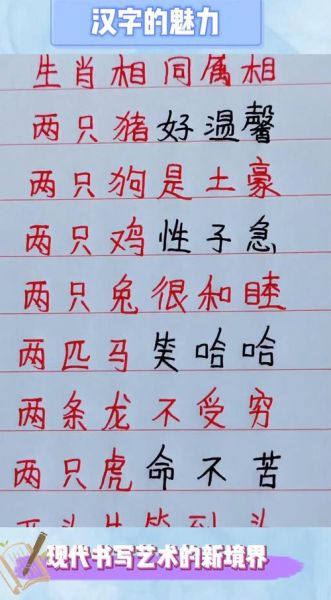 汉字的魅力
生肖相同属相
两只猪好温馨
两只狗是土豪
两只鸡性子急
两只兔很和睦
两匹马笑哈哈
两条龙不受穷
两只虎命不苦
现代书写艺术的新境界